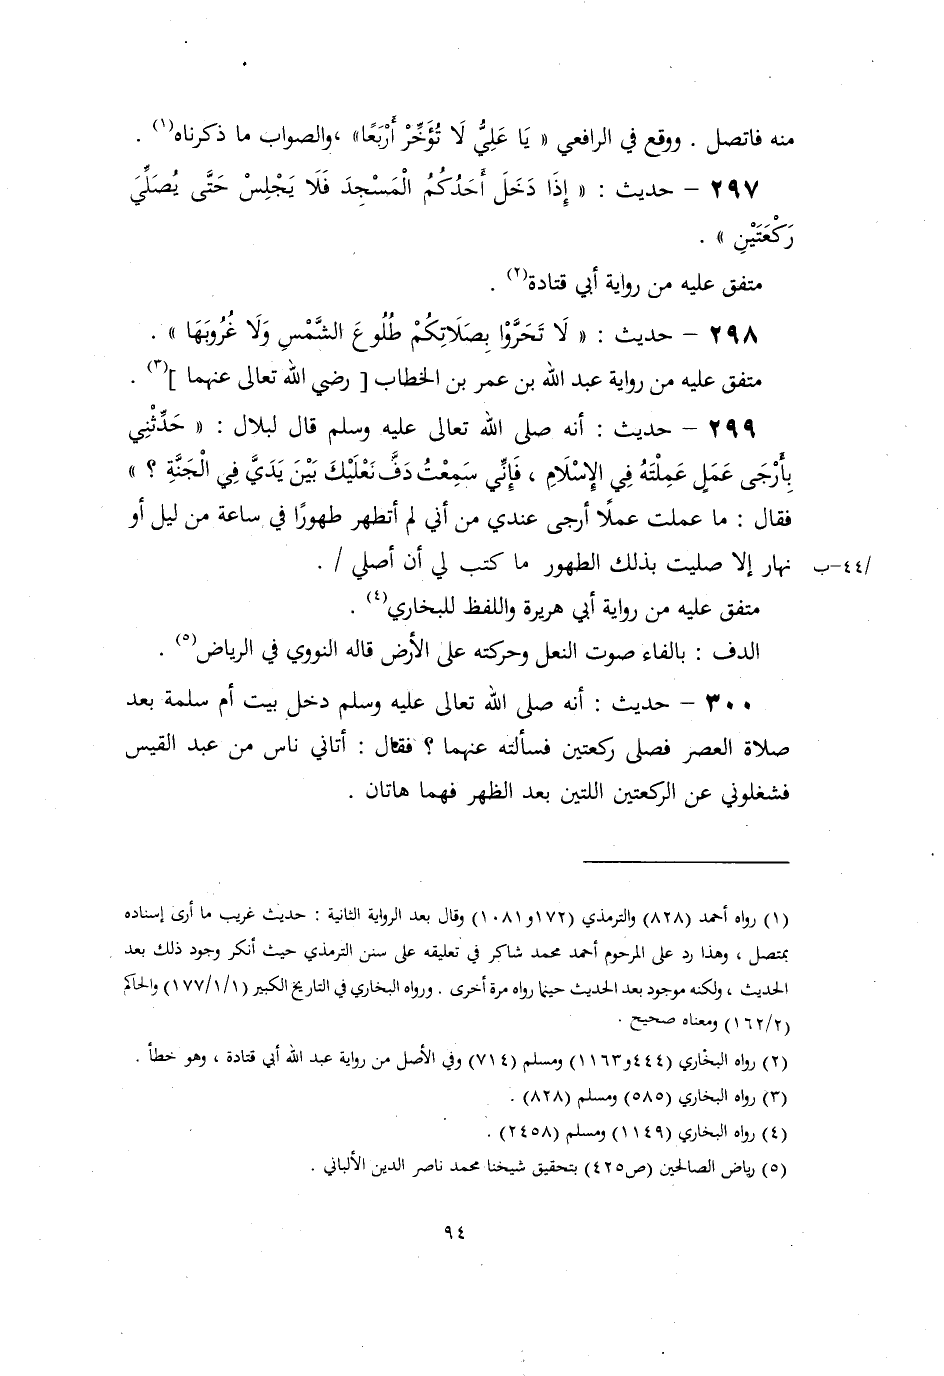 منه فاتصل . ووقع في الرافعي « يَا عَلِيُّ لَا تُؤَخِّرْ أَرْبَعًا» ،والصواب ما ذكرناه(١) .
٢٩٧ – حديث : « إِذَا دَخَلَ أَحَدُكُمُ الْمَسْجِدَ فَلَا يَجْلِسْ حَتَّى يُصَلِّيَ
رَكْعَتَيْنِ » .
متفق عليه من رواية أبي قتادة(٢) .
٢٩٨ – حديث : « لَا تَحَرَّوْا بِصَلَاتِكُمْ طُلُوعَ الشَّمْسِ وَلَا غُرُوبَهَا » .
متفق عليه من رواية عبد الله بن عمر بن الخطاب [ رضي الله تعالى عنهما ](٣) .
٢٩٩ – حديث : أنه صلى الله تعالى عليه وسلم قال لبلال : « حَدِّثْنِي
بِأَرْجَى عَمَلٍ عَمِلْتَهُ فِي الإِسْلَامِ ، فَإِنِّي سَمِعْتُ دَفَّ نَعْلَيْكَ بَيْنَ يَدَيَّ فِي الْجَنَّةِ ؟ »
فقال : ما عملت عملًا أرجى عندي من أني لم أتطهر طهورًا في ساعة من ليل أو
نهار إلا صليت بذلك الطهور ما كتب لي أن أصلي / . /٤٤-ب
متفق عليه من رواية أبي هريرة واللفظ للبخاري(٤) .
الدف : بالفاء صوت النعل وحركته على الأرض قاله النووي في الرياض(٥) .
٣٠٠ – حديث : أنه صلى الله تعالى عليه وسلم دخل بيت أم سلمة بعد
صلاة العصر فصلى ركعتين فسألته عنهما ؟ فقال : أتاني ناس من عبد القيس
فشغلوني عن الركعتين اللتين بعد الظهر فهما هاتان .
(١) رواه أحمد (٨٢٨) والترمذي (١٧٢و١٠٨١) وقال بعد الرواية الثانية : حديث غريب ما أرى إسناده
بمتصل ، وهذا رد على المرحوم أحمد محمد شاكر في تعليقه على سنن الترمذي حيث أنكر وجود ذلك بعد
الحديث ، ولكنه موجود بعد الحديث حينما رواه مرة أخرى . ورواه البخاري في التاريخ الكبير (١٧٧/١/١) والحاكم
(١٦٢/٢) ومعناه صحيح .
(٢) رواه البخاري (٤٤٤و١١٦٣) ومسلم (٧١٤) وفي الأصل من رواية عبد الله أبي قتادة ، وهو خطأ .
(٣) رواه البخاري (٥٨٥) ومسلم (٨٢٨) .
(٤) رواه البخاري (١١٤٩) ومسلم (٢٤٥٨) .
(٥) رياض الصالحين (ص٤٢٥) بتحقيق شيخنا محمد ناصر الدين الألباني .
٩٤